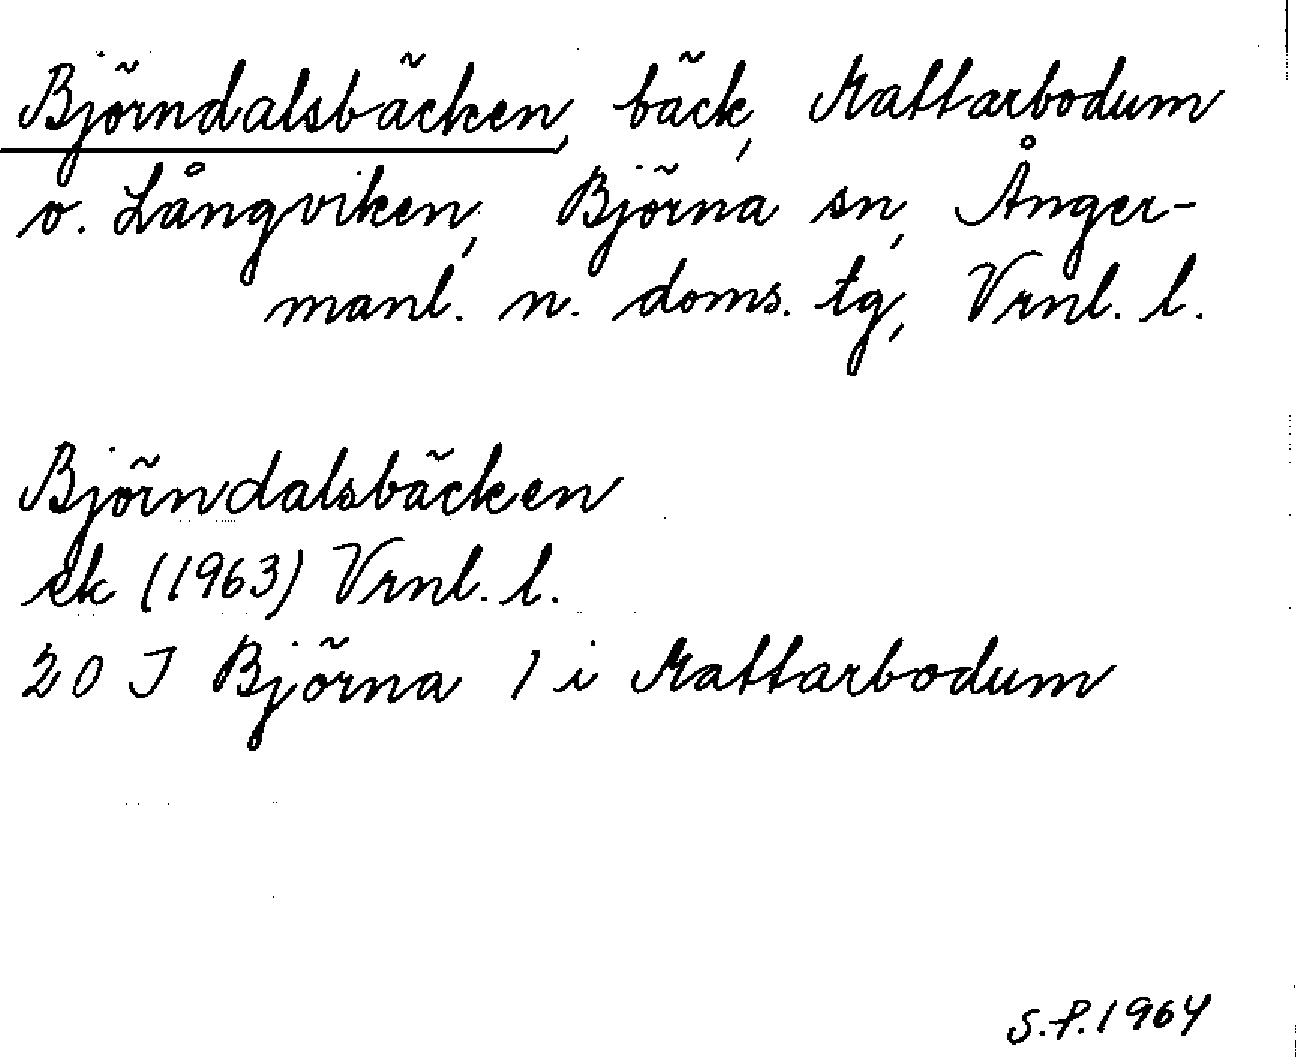 Björndalsbäcken, bäck, Mattarbodum
o. Långviken, Björna sn, Ånger-
manl. n. doms. tg, Vrnl. l.
Björndalsbäcken
ek (1963) Vrnl. l.
20 J Björna 1 i Mattarbodum
S.P. 1964